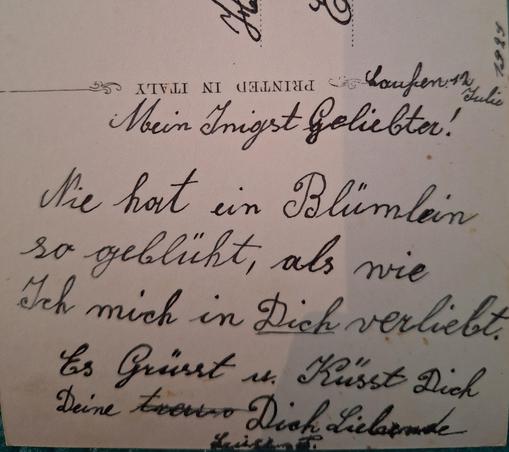 1921
Laufen, 12
Julie
PRINTED IN ITALY
Mein Inigst Geliebter!
Nie hat ein Blümlein
so geblüht, als wie
Ich mich in Dich verliebt.
Es Grüsst u. Küsst Dich
Deine treue Dich Liebende